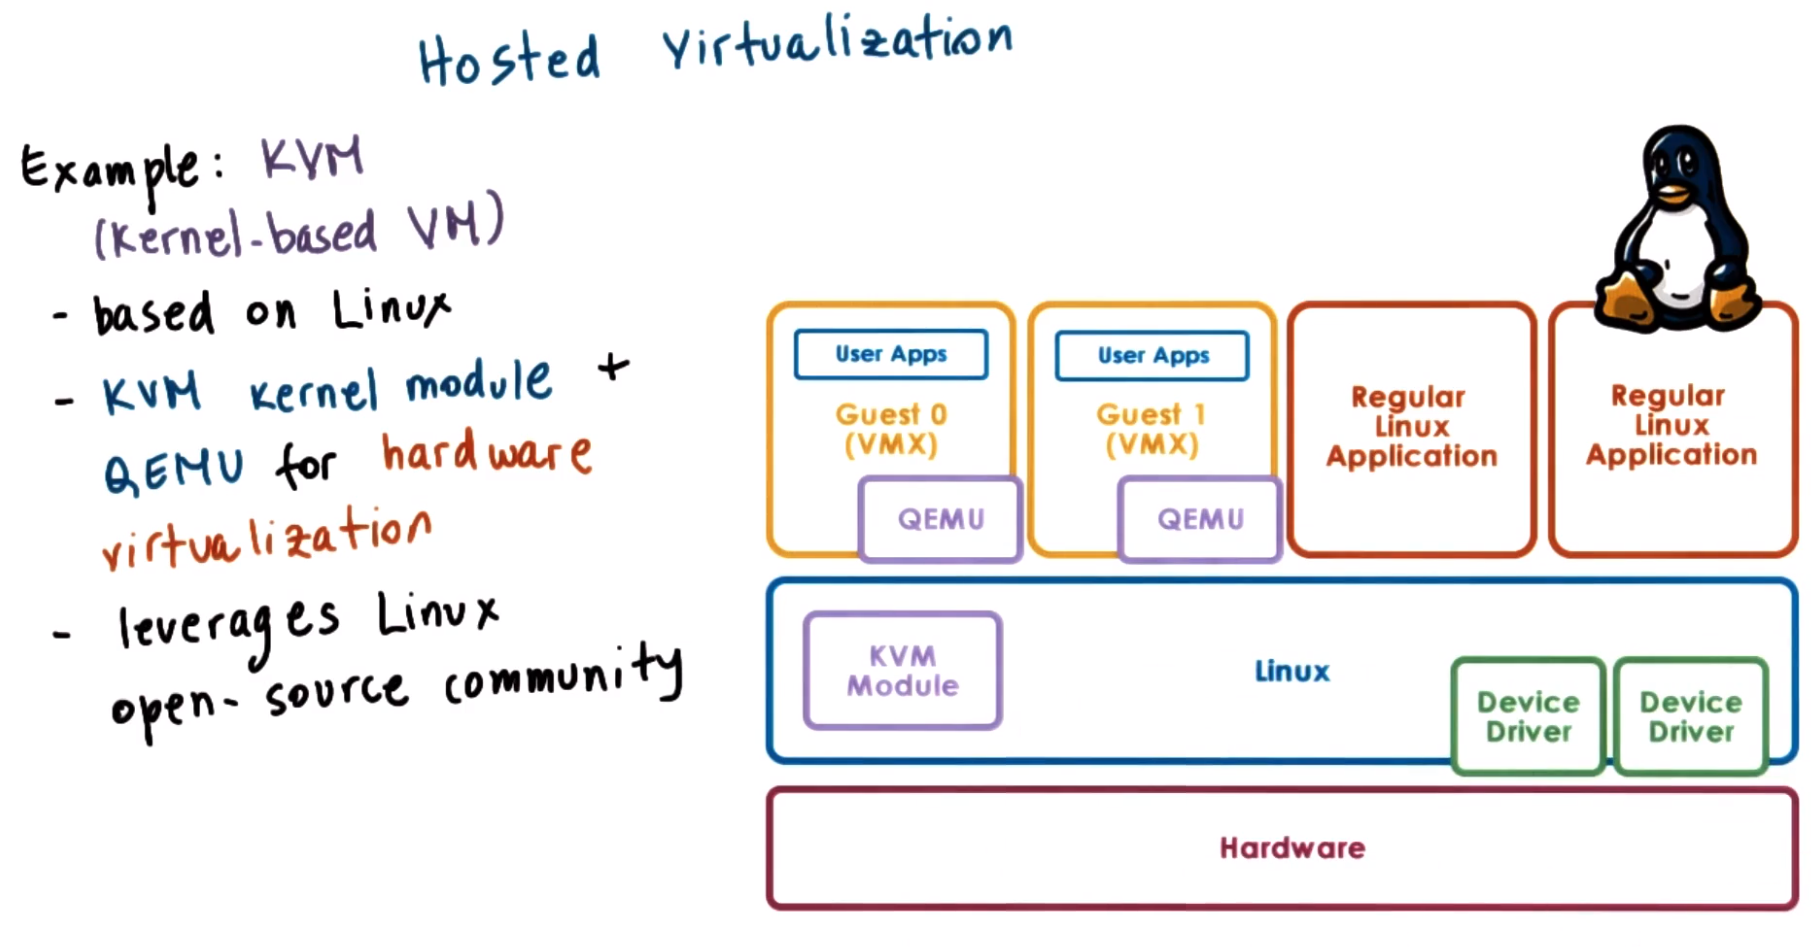 Hosted Virtualization
Example: KVM
(Kernel-based VM)
- based on Linux
- KVM kernel module +
QEMU for hardware
virtualization
- leverages Linux
open-source community
User Apps
Guest 0
(VMX)
QEMU
User Apps
Guest 1
(VMX)
QEMU
Regular
Linux
Application
Regular
Linux
Application
KVM
Module
Linux
Device
Driver
Device
Driver
Hardware